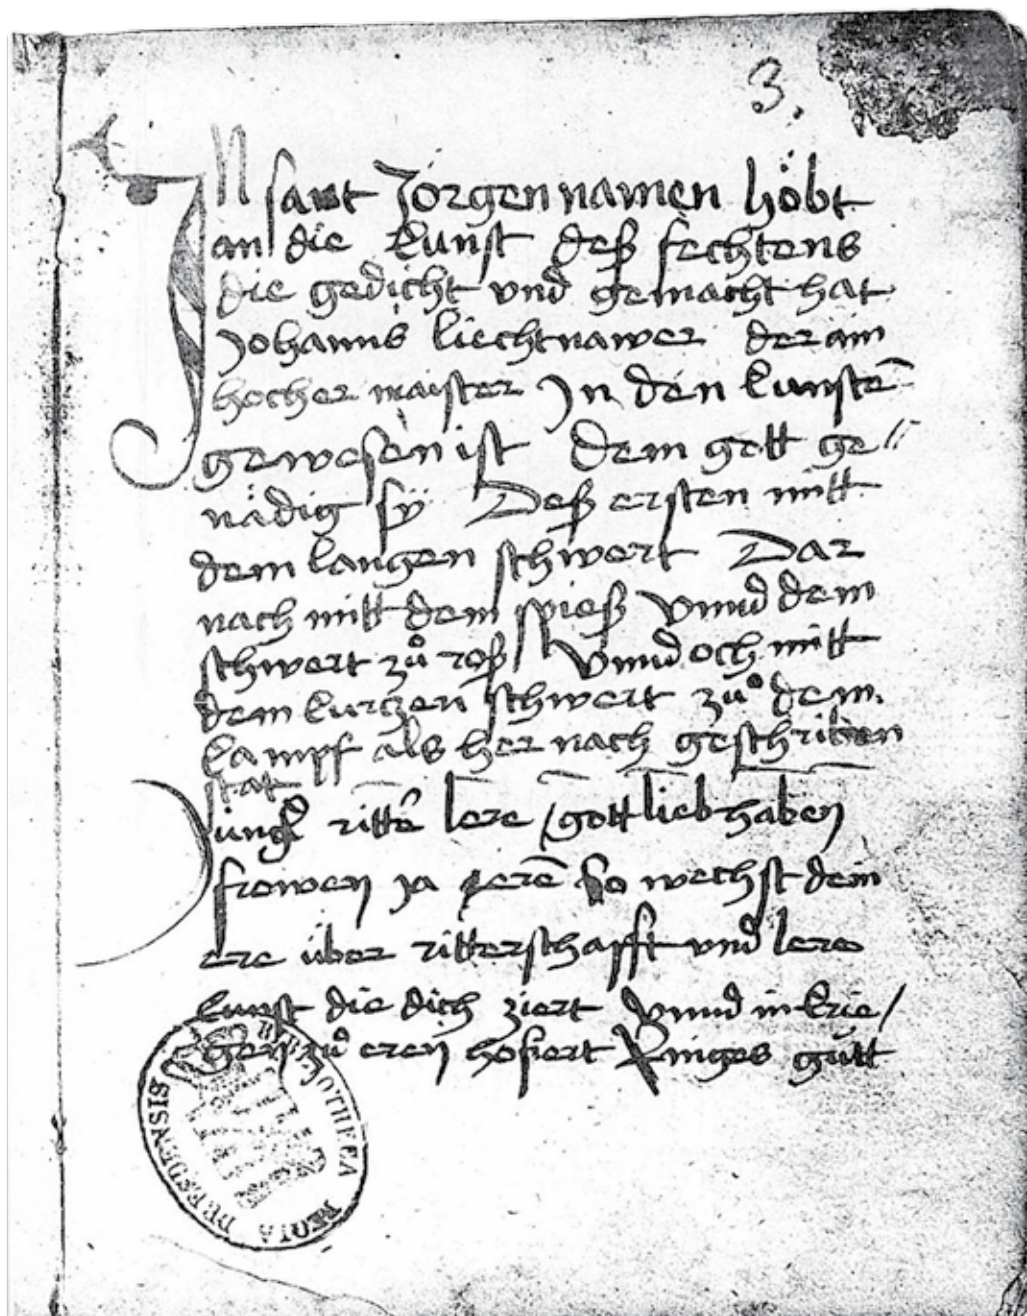 3.
JN sant Jörgen namen höbt
an die kunst deß fechtens
die gedicht vnd gemacht hat
Johanns liechtnawer der ain
hocher maister Jn den kunstē
gewesen ist dem gott ge//
nädig sÿ Deß ersten mitt
dem langen schwert Dar
nach mitt dem spieß Vnnd dem
schwert zů roß Vnnd och mitt
dem kurczen schwert zů dem
kampf als her nach geschriben
stat
Jungr̄ ritter lere / gott lieb haben
frowen ja erē So wechst dein
ere über ritterschafft vnd lere
kunst die dich ziert Vnnd in krie/
gen zů eren hofiert Ringes gůtt
BIBLIOTHECA REGIA DRESDENSIS